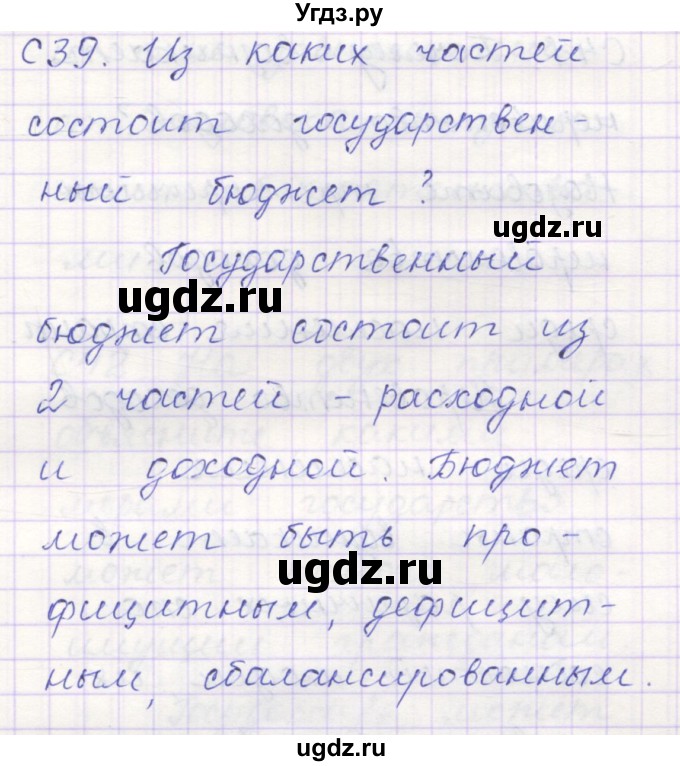 Угдз.ру
С39. Из каких частей
состоит государствен-
ный бюджет?
ugdz.ru
Государственный
ugdz.ru
бюджет состоит из
2 частей – расходной
и доходной. Бюджет
может быть про-
ugdz.ru
фицитным, дефицит-
ным, сбалансированным.
ugdz.ru